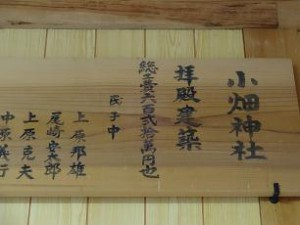 小畑神社
拝殿建築
総工費六百弐拾萬円也
氏子中
上原邦雄
尾崎安太郎
上原克夫
中原義行